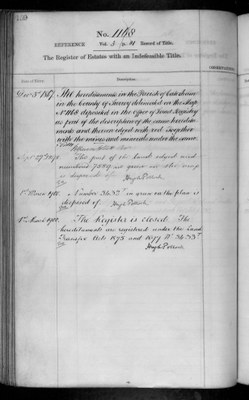 No. 1168
REFERENCE Vol. 3 p. 81 Record of Title.
The Register of Estates with an Indefeasible Title.
Date of Entry. Description.
The hereditaments in the Parish of Caterham
in the County of Surrey delineated on the Map
No 1168 deposited in the office of Land Registry
as part of the description of the same heredita-
ments and thereon edged with red Together
with the mines and minerals under the same.
The part of the land edged and
numbered in green on the map
is disposed of. Hugh Pollock
1st March 1902. Number 3633 in green on the plan is
disposed of. Hugh Pollock
1st March 1902. The Register is closed. The
hereditaments are registered under the Land
Transfer Acts 1875 and 1897 No 3633
Hugh Pollock